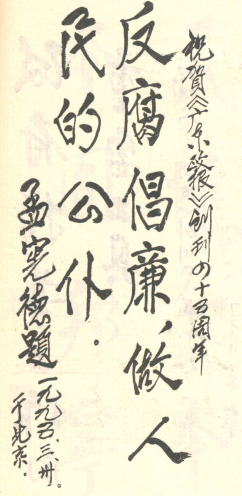 祝贺《广东政报》创刊四十五周年
反腐倡廉,做人
民的公仆.
孟宪德题
一九九五.三.卅。
于北京.